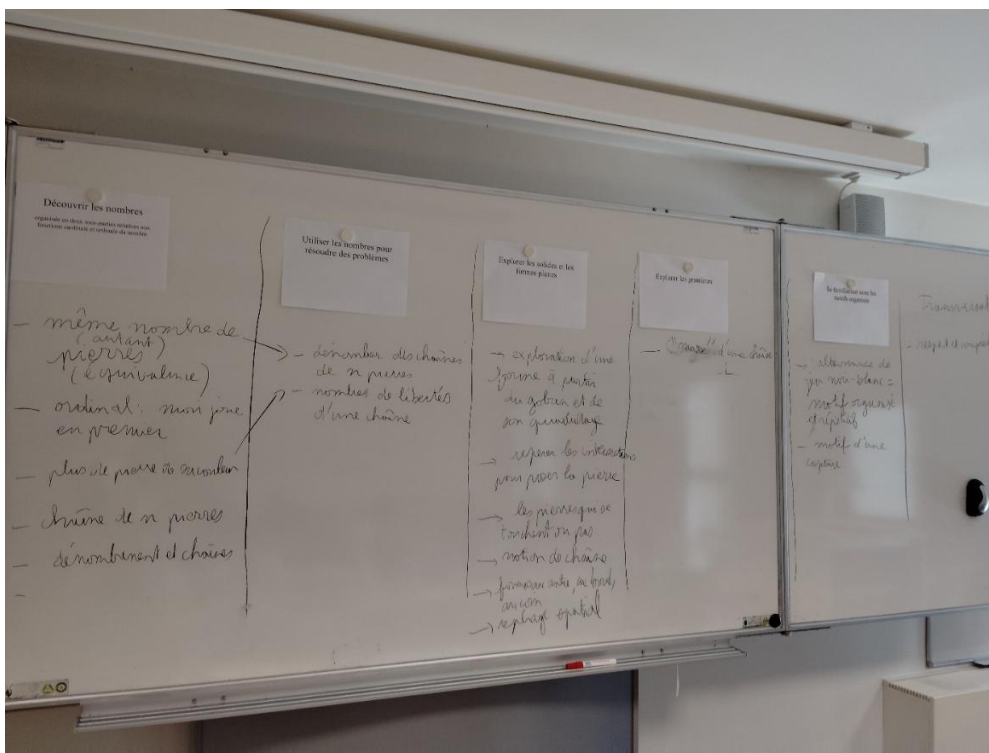 Découvrir les nombres
organisée en deux sous-parties relatives aux
fonctions cardinale et ordinale du nombre
- même nombre de
(autant)
pierres
(équivalence)
- ordinal : noir joue
en premier
- plus de pierre
- chaîne de n pierres
- dénombrement et chaînes
-
Utiliser les nombres pour
résoudre des problèmes
- dénombrer des chaînes
de n pierres
- nombres de libertés
d'une chaîne
Explorer les solides et les
formes planes
→ exploration d'une
forme à partir
du goban et de
son quadrillage
→ repérer les intersections
pour poser la pierre
→ les pierres qui se
touchent ou pas
→ notion de chaîne
→ au bord,
au coin
→ repérage spatial
Explorer les grandeurs
- d'une chaîne
Se familiariser avec les
motifs organisés
→ alternance de
jeu noir-blanc =
motif organisé
et répétitif
- motif d'une
capture
- respect